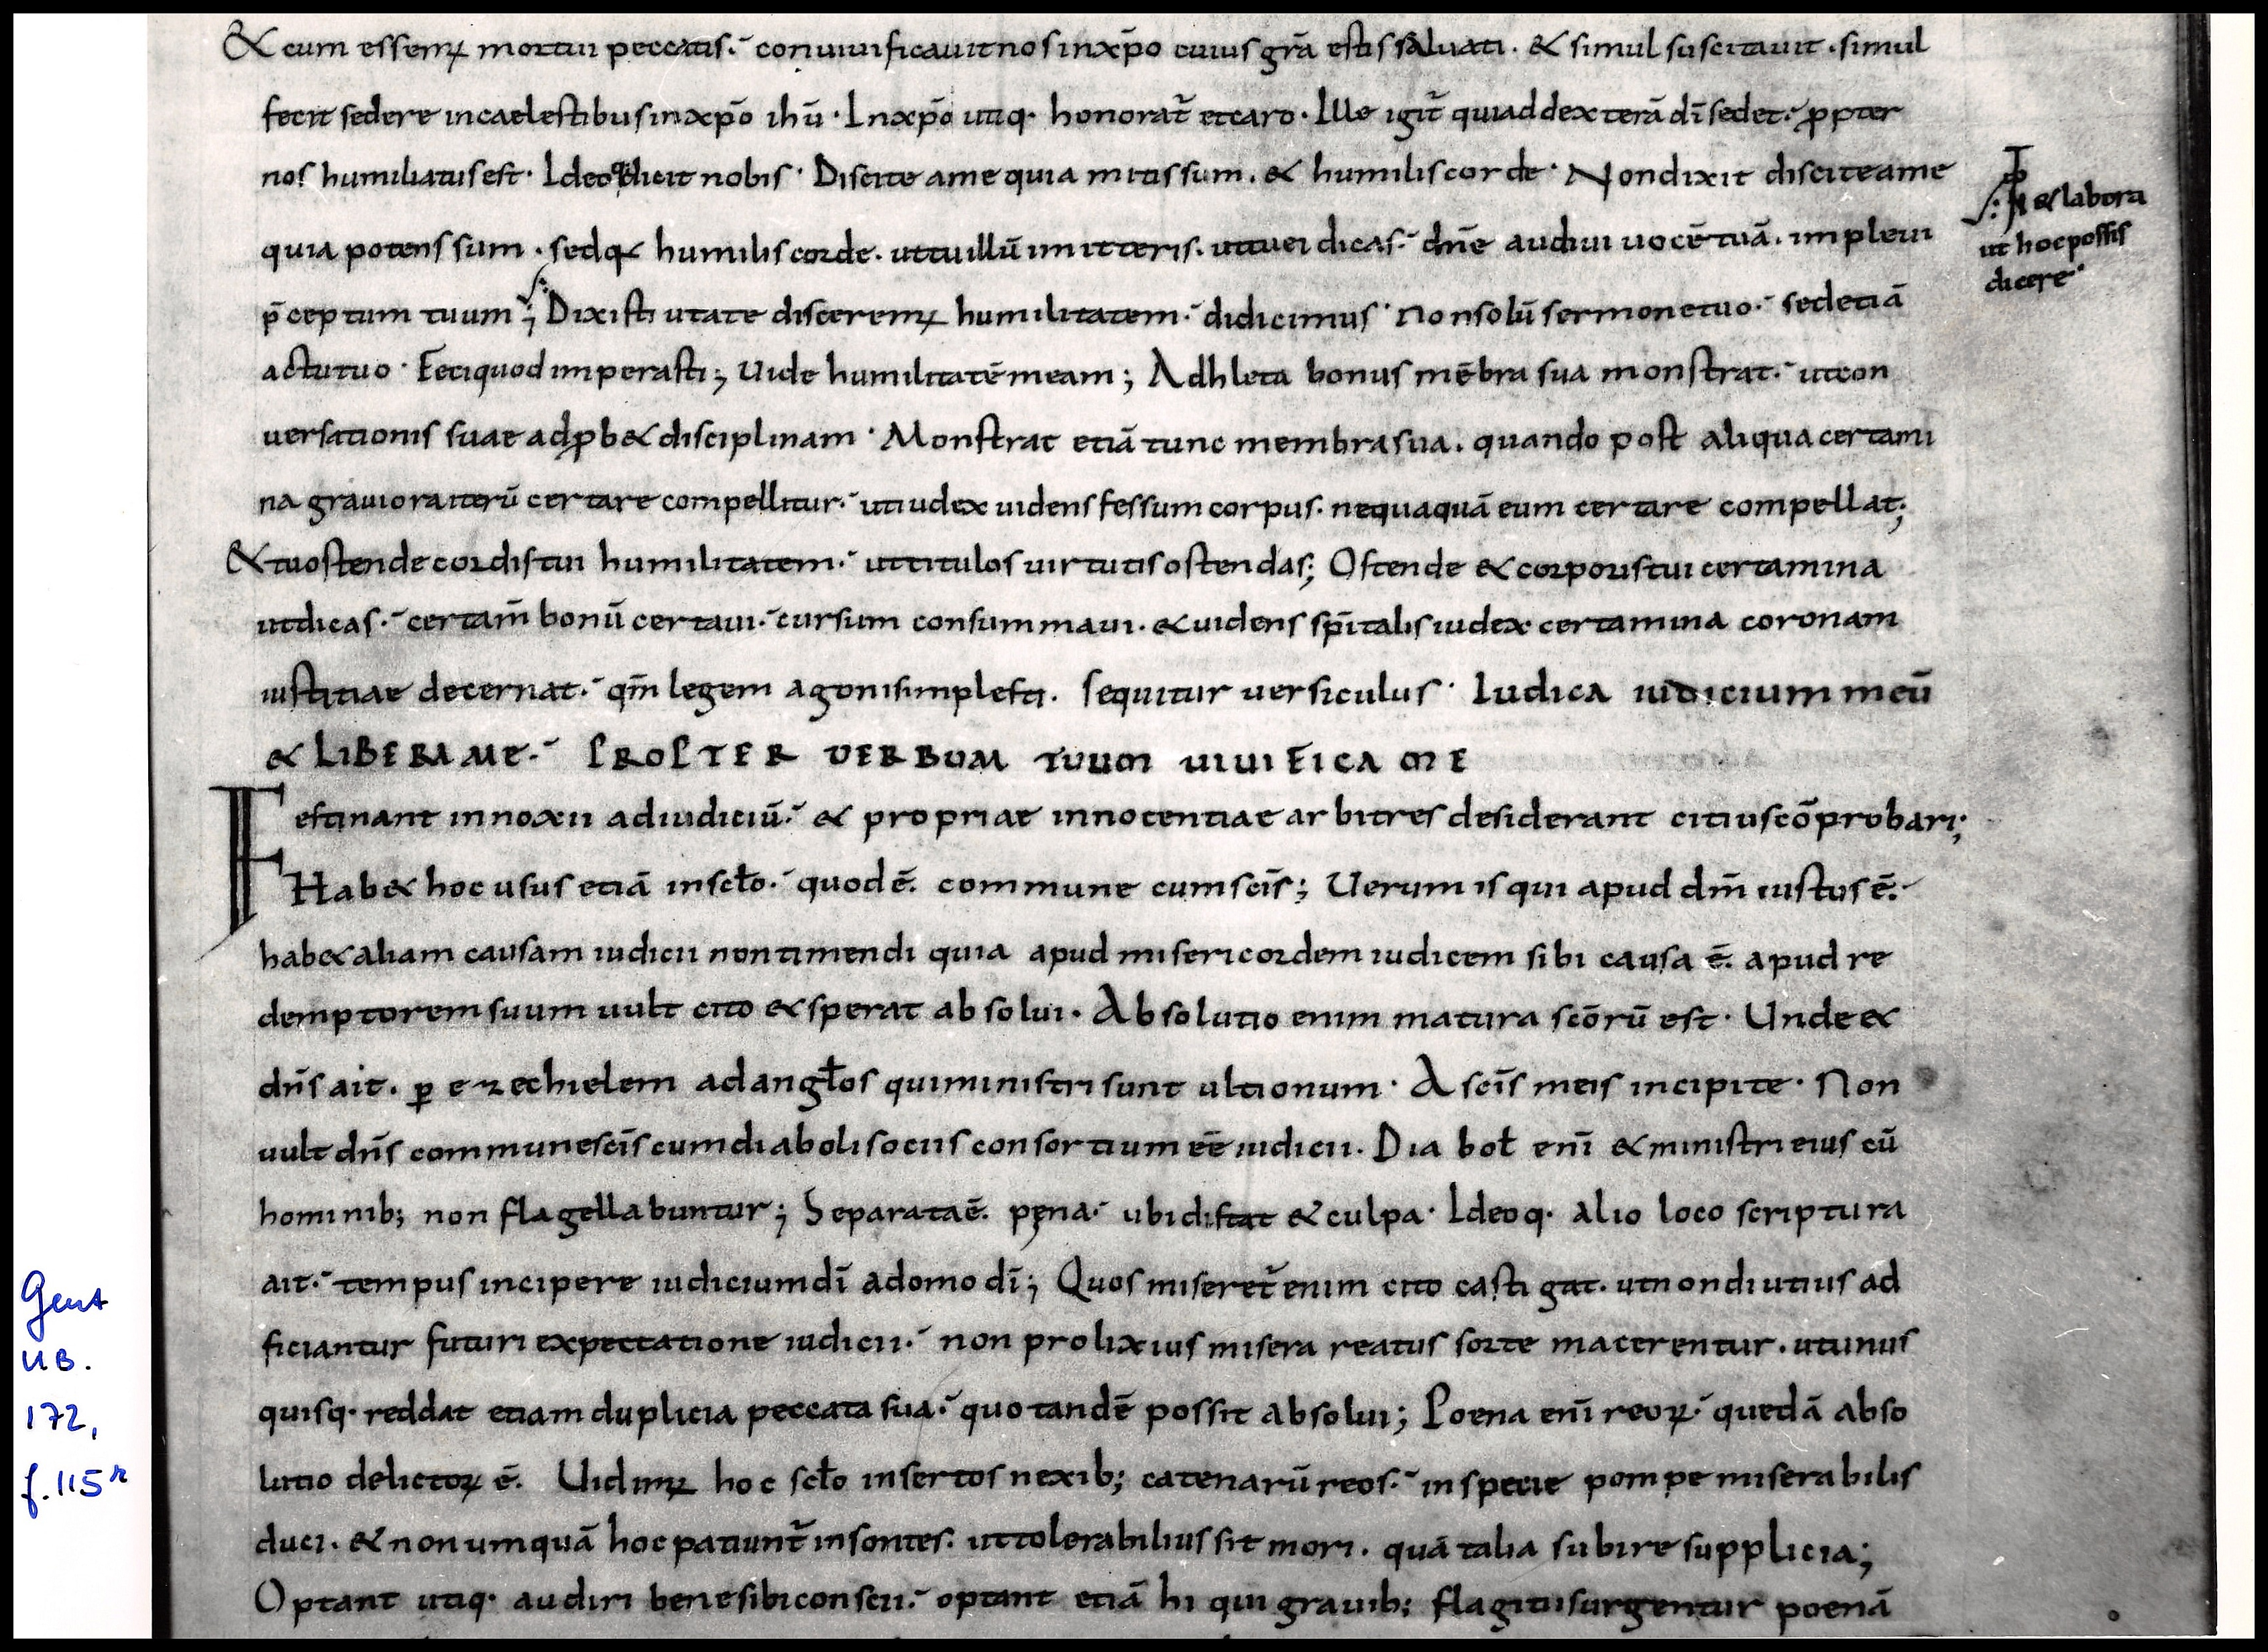 & cum essemꝰ mortui peccatis. conuiuificauit nos in xp̄o cuius gr̄a estis saluati. & simul suscitauit. simul
fecit sedere in caelestibus in xp̄o ihū. In xp̄o utiq. honorat̄ et caro. Ille igit̄ qui ad dexterā dī sedet. ꝓpter
nos humiliatus est. Ideoq dicit nobis. Discite a me quia mitis sum. & humilis corde. Non dixit discite a me
quia potens sum. sed humilis corde. ut tu illū imiteris. ut tu ei dicas. dn̄e audiui uocē tuā. impleui
p̄ceptum tuum; Dixisti ut a te disceremꝰ humilitatem. didicimus. non solū sermone tuo. sed etiā
actu tuo. Feci quod imperasti; Uide humilitatē meam; Adhleta bonus mēbra sua monstrat. ut con
uersationis suae adꝓb& disciplinam. Monstrat etiā tunc membra sua. quando post aliqua certami
na grauiora iterū certare compellitur. ut iudex uidens fessum corpus. nequaquā eum certare compellat;
& tu ostende cordis tui humilitatem. ut titulos uirtutis ostendas; Ostende & corporis tui certamina
ut dicas. certam̄ bonū certaui. cursum consummaui. & uidens sp̄italis iudex certamina coronam
iustitiae decernat. qm̄ legem agonis impleti. sequitur uersiculus. Iudica iudicium meū
& LIBERA ME. PROPTER UERBUM TUUM UIUIFICA ME
Festinant innoxii ad iudiciū. & propriae innocentiae arbitres desiderant citius cōprobari;
Hab& hoc usus etiā in scł̄o. quod ē. commune cum sc̄is; Uerum is qui apud dm̄ iustus ē.
hab& aliam causam iudicii non timendi quia apud misericordem iudicem sibi causa ē. apud re
demptorem suum uult cito & sperat absolui. Absolutio enim matura sc̄orū est. Unde &
dn̄s ait. ꝑ ezechielem ad angł̄os qui ministri sunt ultionum. A sc̄is meis incipite. Non
uult dn̄s commune sc̄is cum diaboli sociis consortium eē iudicii. Diaboł enī & ministri eius cū
hominib; non flagellabuntur; Separata ē. pęna. ubi distat & culpa. Ideoq. alio loco scriptura
ait. tempus incipere iudicium dī a domo dī; Quos miseret̄ enim cito castigat. ut non diutius ad
ficiantur futuri expectatione iudicii. non prolixius misera reatus sorte macerentur. ut unus
quisq. reddat etiam duplicia peccata sua. quo tandē possit absolui; Poena enī reoꝝ. quedā abso
lutio delictoꝝ ē. Uidimꝰ hoc scł̄o insertos nexib; catenarū reos. in specie pompe miserabilis
duci. & non umquā hoc patiunt̄ insontes. ut tolerabilius sit mori. quā talia subire supplicia;
Optant utiq. audiri bene sibi conscii. optant etiā hi qui grauib; flagitiis urgentur poenā
& labora
ut hoc possis
dicere
Gent
UB.
172,
f. 115r